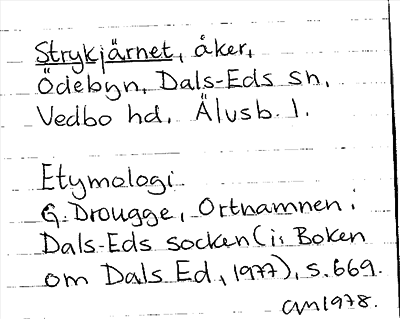 Strykjärnet, åker,
Ödebyn, Dals-Eds sn,
Vedbo hd, Älvsb. l.
Etymologi
G. Drougge, Ortnamnen i
Dals-Eds socken (i: Boken
om Dals Ed, 1977), s. 669.
AM 1978.